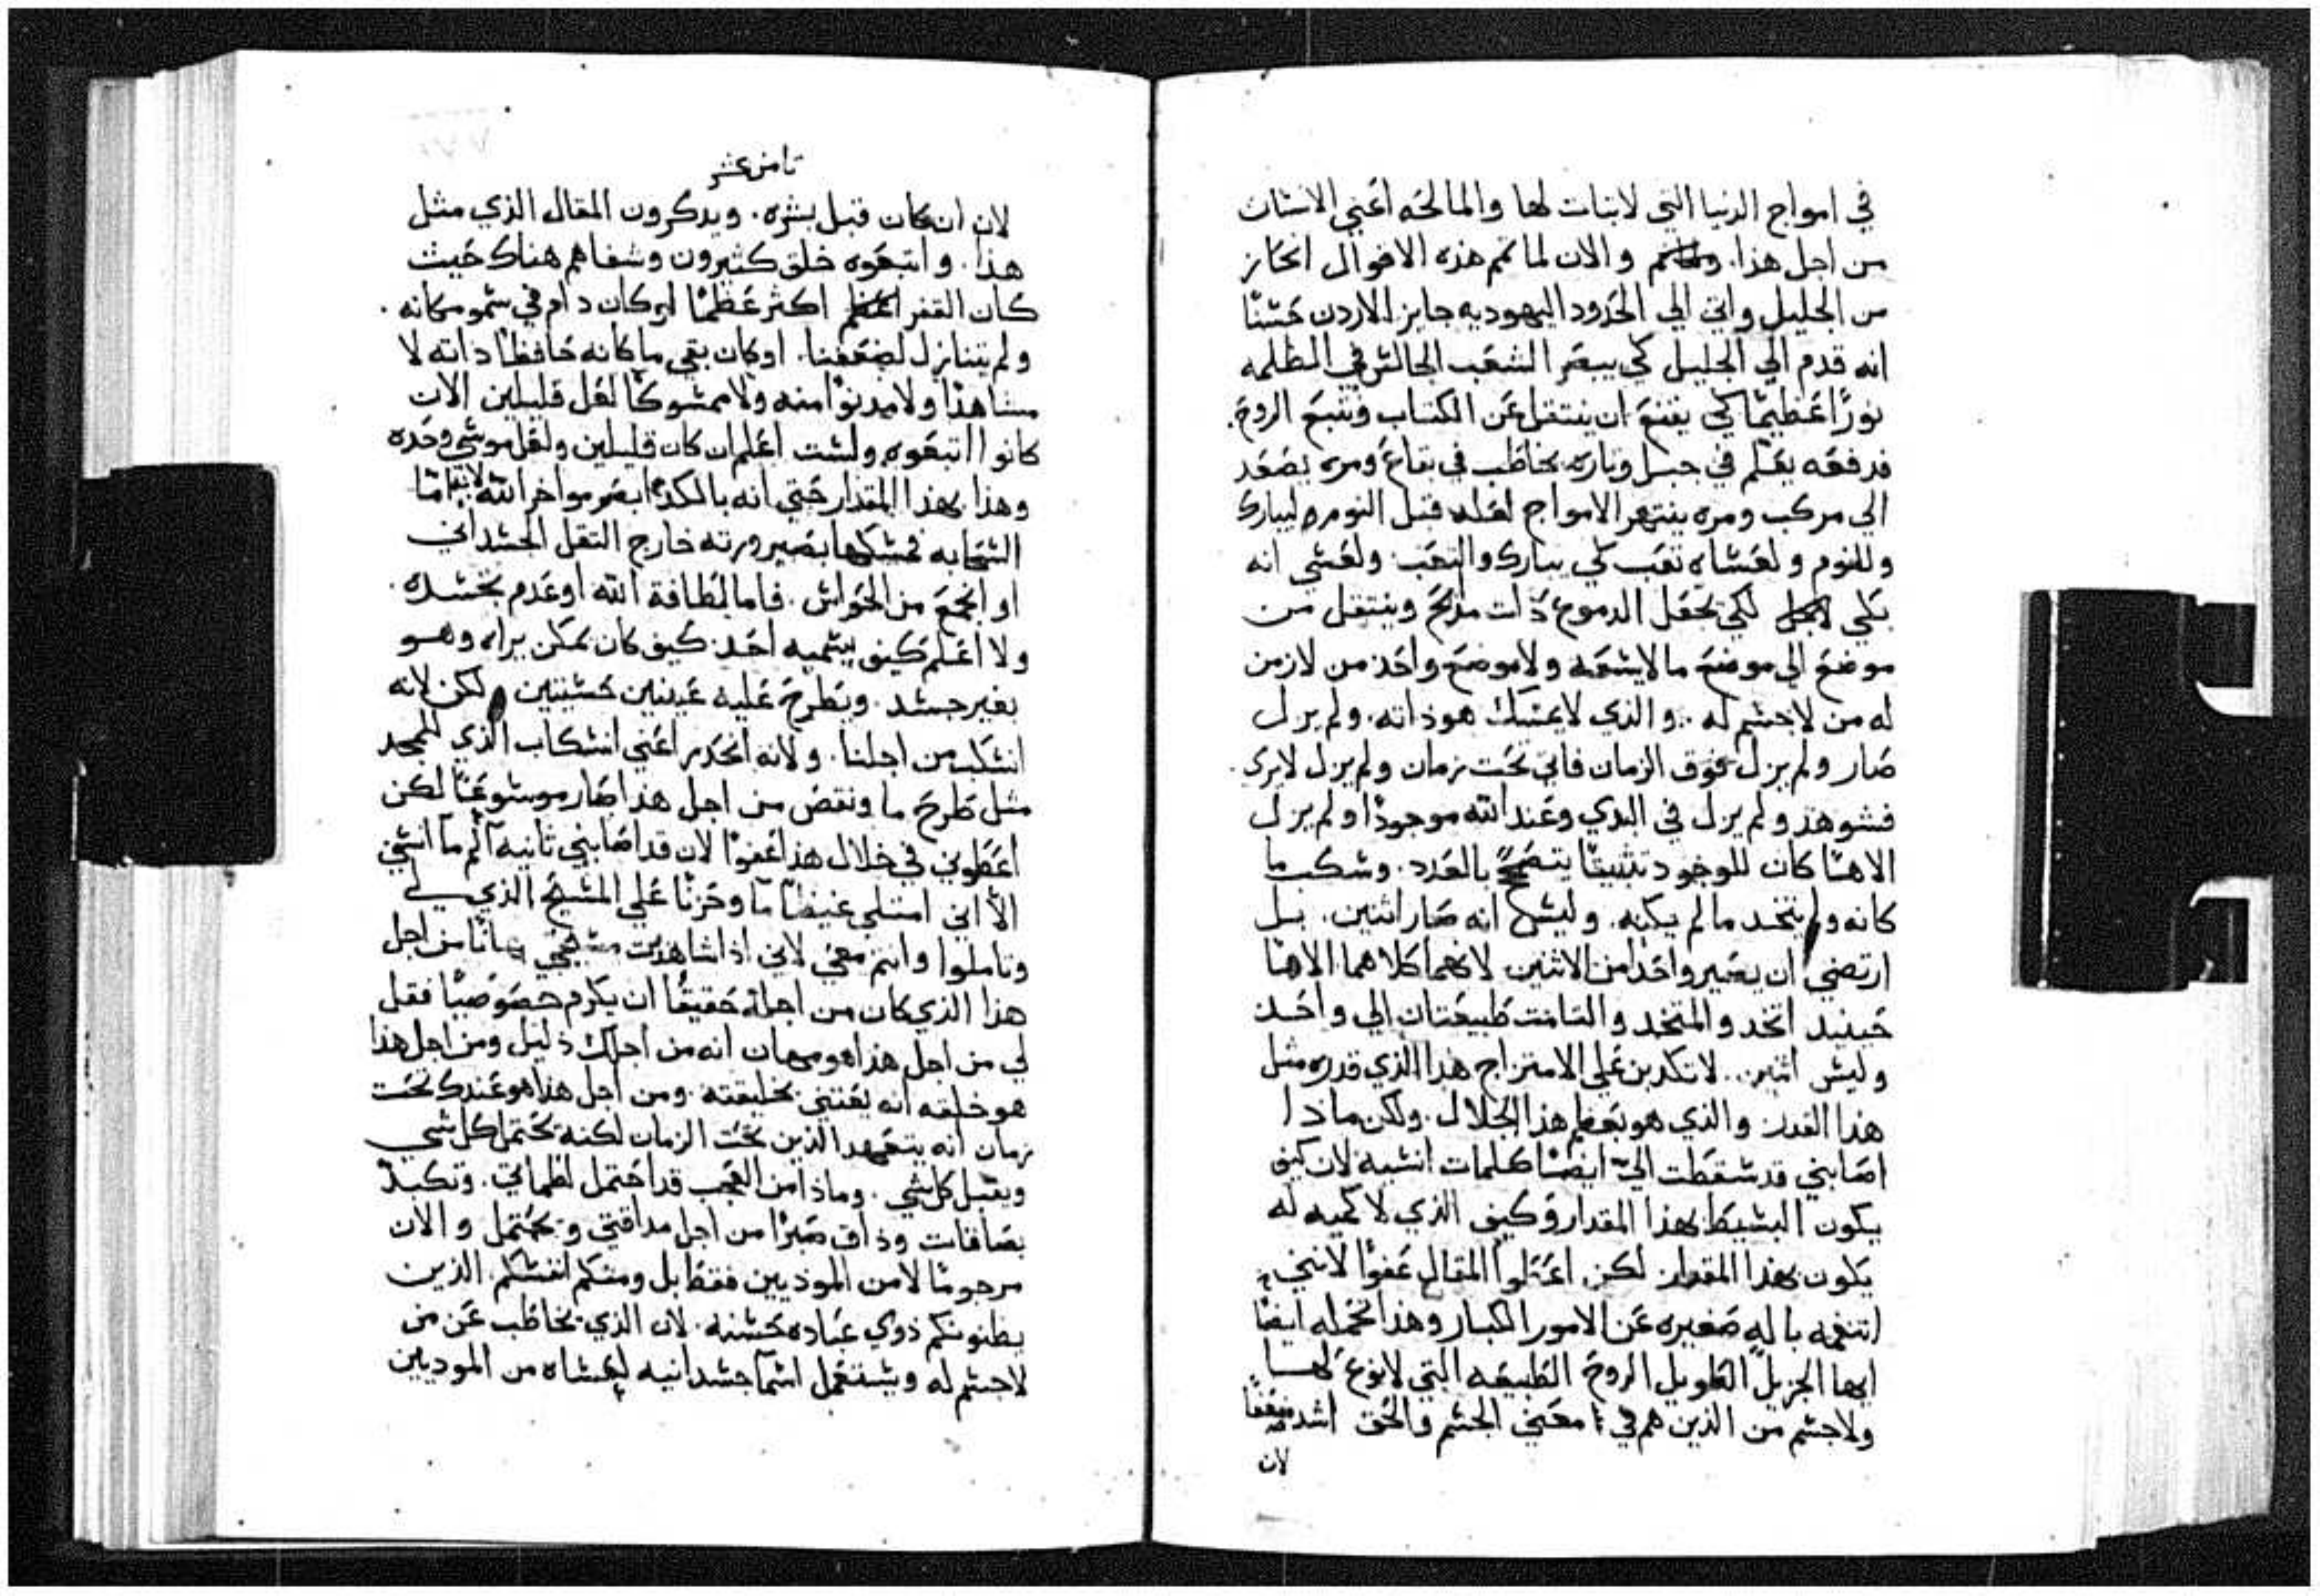 في امواج الدنيا التي لاثبات لها والمالحه اعني الانسان
من اجل هذا. والان لما تمم هذه الاقوال انحاز
من الجليل واتي الي الحدود اليهوديه جايز الاردن حسنا
انه قدم الي الجليل كي يبصر الشعب الجالس في الظلمه
نورًا عظيمًا كي يقنع ان ينتقل عن الكتاب وتتبع الروح.
فدفعه يعلم في جبل وتاره يخاطب في بقاع ومره يصعد
الي مركب ومره ينتهر الامواج لعله قبل النوم ليبارك
وللنوم ولعساه تعب كي يبارك والتعب ولعسي انه
بكي لكي يجعل الدموع ذات مدح وينتقل من
موضع الي موضع مالايسعه ولاموضع واحد من لازمن
له من لاجسم له .. والذي لايمسك هو ذاته. ولم يزل
صار ولم يزل فوق الزمان فاتي تحت زمان ولم يزل لايري.
فشوهد ولم يزل في البدي وعند الله موجودًا ولم يزل
الاهًا كان للوجود تثبيتًا يتصحح بالعدد. وسكب ما
كانه ولم يتخد مالم يكنه. وليس انه صار اثنين. بل
ارتضي ان يصير واحدًا من الاثنين لانهما كلاهما الاها
حينيد اتخد والمتخد والتامت طبيعتان الي واحد
وليس اثنين.. لاتكدبن علي الامتزاج هذا الذي قدره مثل
هذا القدر والذي هو بعظم هذا الجلال. ولكن ماذا
اصابني قد سقطت الي ايضًا كلمات انسيه لان كيف
يكون البسيط بهذا المقدار وكيف الذي لاكميه له
يكون بهذا المقدار لكن المقال عفوًا لانني
باله صغيره عن الامور الكبار وهذا تحمله ايضا
ايها الجزيل الطويل الروح الطبيعه التي لانوع لها
ولاجسم من الذين هم في معني الجسم والحق اشد ضعفًا
لان
ثامن عشر
لان ان كان قبل بشره. ويدكرون المقال الذي مثل
هذا. واتبعوه خلق كثيرون وشفاهم هناك حيث
كان القفر اكثر عظمًا لو كان دام في سمو مكانه.
ولم يتنازل لضعفنا. او كان بقي ما كانه حافظًا ذاته لا
مشاهدًا ولامدنوًا منه ولاممسوكًا لعل قليلين الان
كانوا اتبعوه ولست اعلم ان كان قليلين ولعل موسي وحده
وهذا بهذا المقدار حتي انه بالكد ابصر مواخر الله
السحابه بصيرورته خارج الثقل الجسداني
او انجمع من الحواس. فاما لطافة الله او عدم تجسده.
ولا اعلم كيف يسميه احد. كيف كان يمكن يراه وهو
بغير جسد. ويطرح عليه عينين حسيتين ولكن لانه
انسكب من اجلنا. ولانه انحدر اعني انسكاب الذي للمجد
مثل طرح ما ونقص من اجل هذا صار موسوعًا لكن
اعطوني في خلال هذا عفوًا لان قد اصابني ثانيه الم ما انسي
الا اني امتلي غيضًا ما وحزنًا علي المسيح الذي لي
وتاملوا وانتم معي لاني اذا شاهدت مسيحي مهانًا من اجل
هذا الذي كان من اجله حقيقًا ان يكرم خصوصيًا فقل
لي من اجل هذا هو مهان انه من اجلك ذليل ومن اجل هذا
هو خلقه انه يعتني بخليقته. ومن اجل هذا هو عندك تحت
زمان انه يتعهد الذين تحت الزمان لكنه يحتمل كل شي
ويقبل كل شي. وماذا من العجب قد احتمل لطماتي. وتكبد
بصاقات وذاق صبرًا من اجل مداقتي ويحتمل والان
مرجومًا لامن الموذيين فقط بل ومنكم انفسكم الذين
يظنونكم ذوي عباده حسنه. لان الذي يخاطب عن من
لاجسم له ويستعمل اسمآ جسدانيه لعساه من الموديين